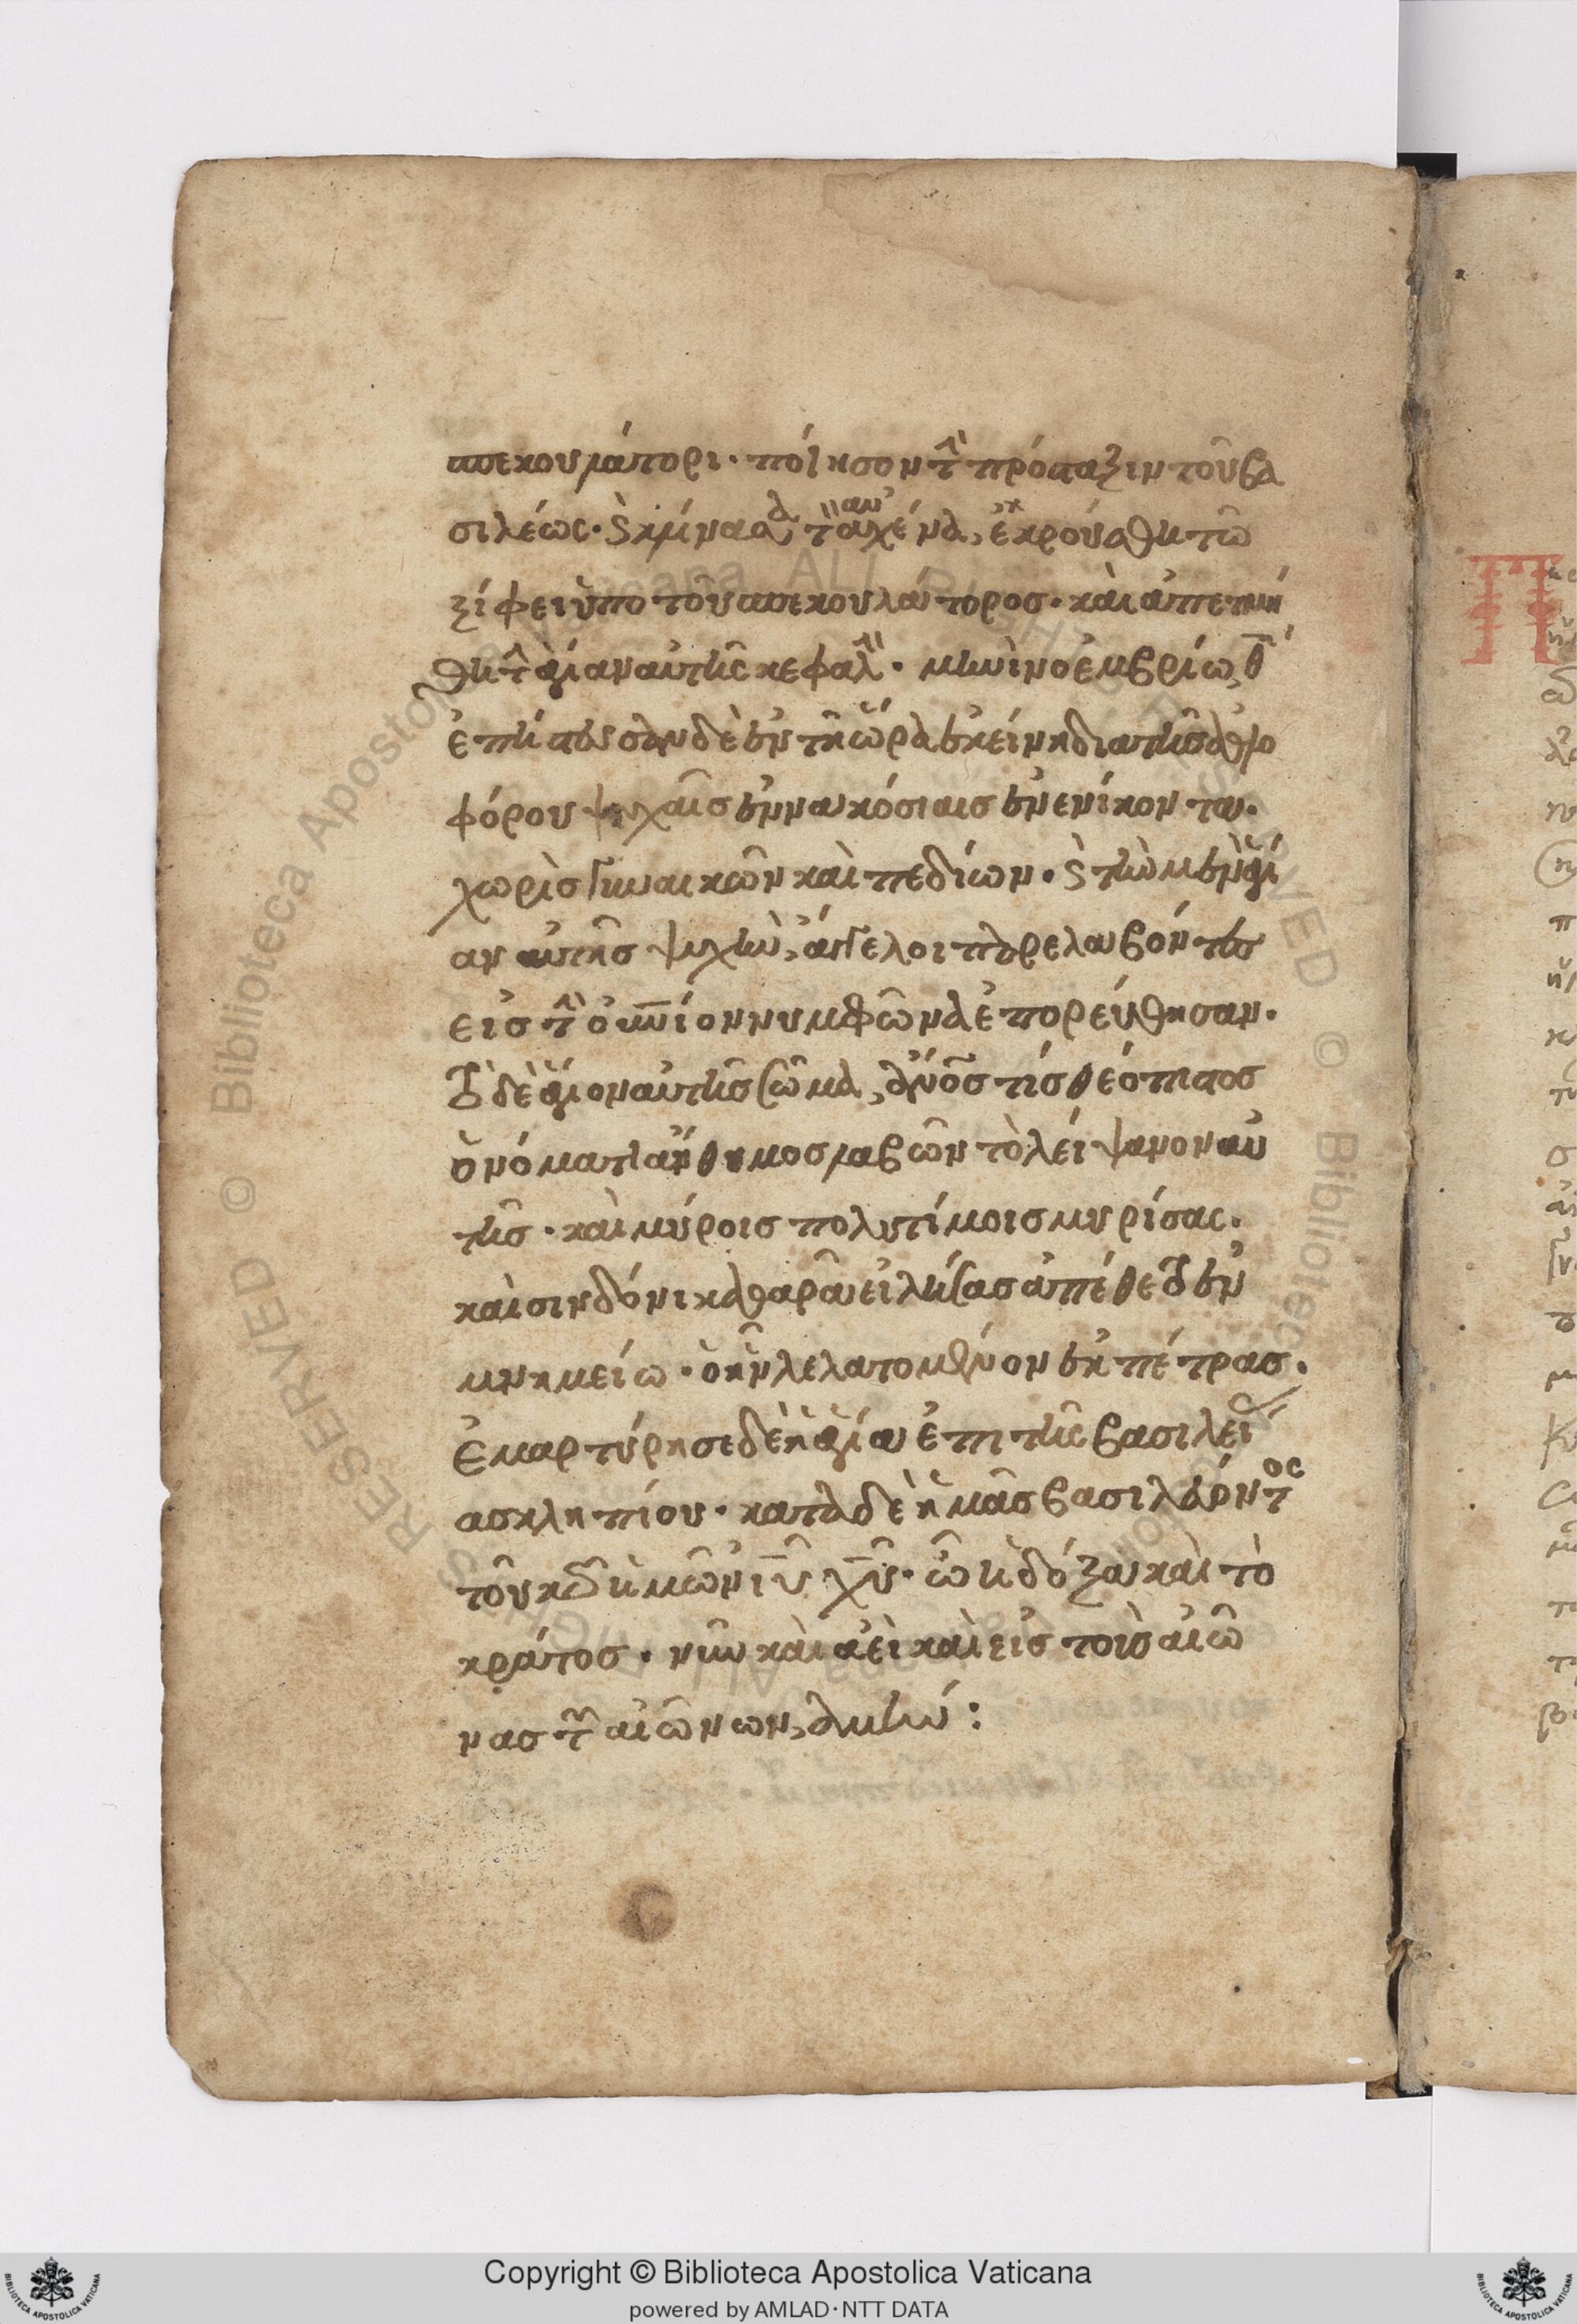 σπεκουλάτορι· ποίησον τὴν πρόσταξιν τοῦ βα
σιλέως· καὶ κλίνασα τὸν αὐχένα, ἐκρούσθη τῶ
ξίφει ὑπὸ τοῦ σπεκουλάτορος· καὶ ἀπετμή
θη τὴν ἁγίαν αὐτῆς κεφαλήν· μηνὶ νοεμβρίω, θ´
ἐπίστευσαν δὲ ἐν τῆ ὥρα ἐκείνη διὰ τῆς ἀθλο
φόρου ψυχαῖς ἐννακόσιαις ἐνενίκοντα·
χωρὶς γυναικῶν καὶ πεδίων· καὶ τὴν μὲν ἁγί
αν αὐτῆς ψυχὴν, ἄγγελοι παρελαβόντες
εἰς τὸν οὐνιον νυμφῶνα ἐπορεύθησαν·
τὸ δὲ ἅγιον αὐτῆς σῶμα, ἀνος τίς θεόπιστος
ὀνόματι ἄνθημος λαβῶν τὸ λείψανον αὐ
τῆς· καὶ μύροις πολυτίμοις μυρίσας·
καὶ σινδόνι καθαρᾶ εἰλήσας ἀπέθετο ἐν
μνημείω· ὃ ἦν λελατομημένον ἐκ πέτρας·
Ἐμαρτύρησε δὲ ἡ ἁγία ἐπὶ τῆς βασιλεί
ασκληπίου· κατὰ δὲ ἡμᾶς βασιλεύοντος
τοῦ κυ ἡμῶν ιυ χυ· ὧ ἡ δόξα καὶ τὸ
κράτος· νῦν καὶ ἀεὶ καὶ εἰς τοὺς αἰῶ
νας τῶν αἰώνων, ἀμήν:
Copyright © Biblioteca Apostolica Vaticana
powered by AMLAD·NTT DATA